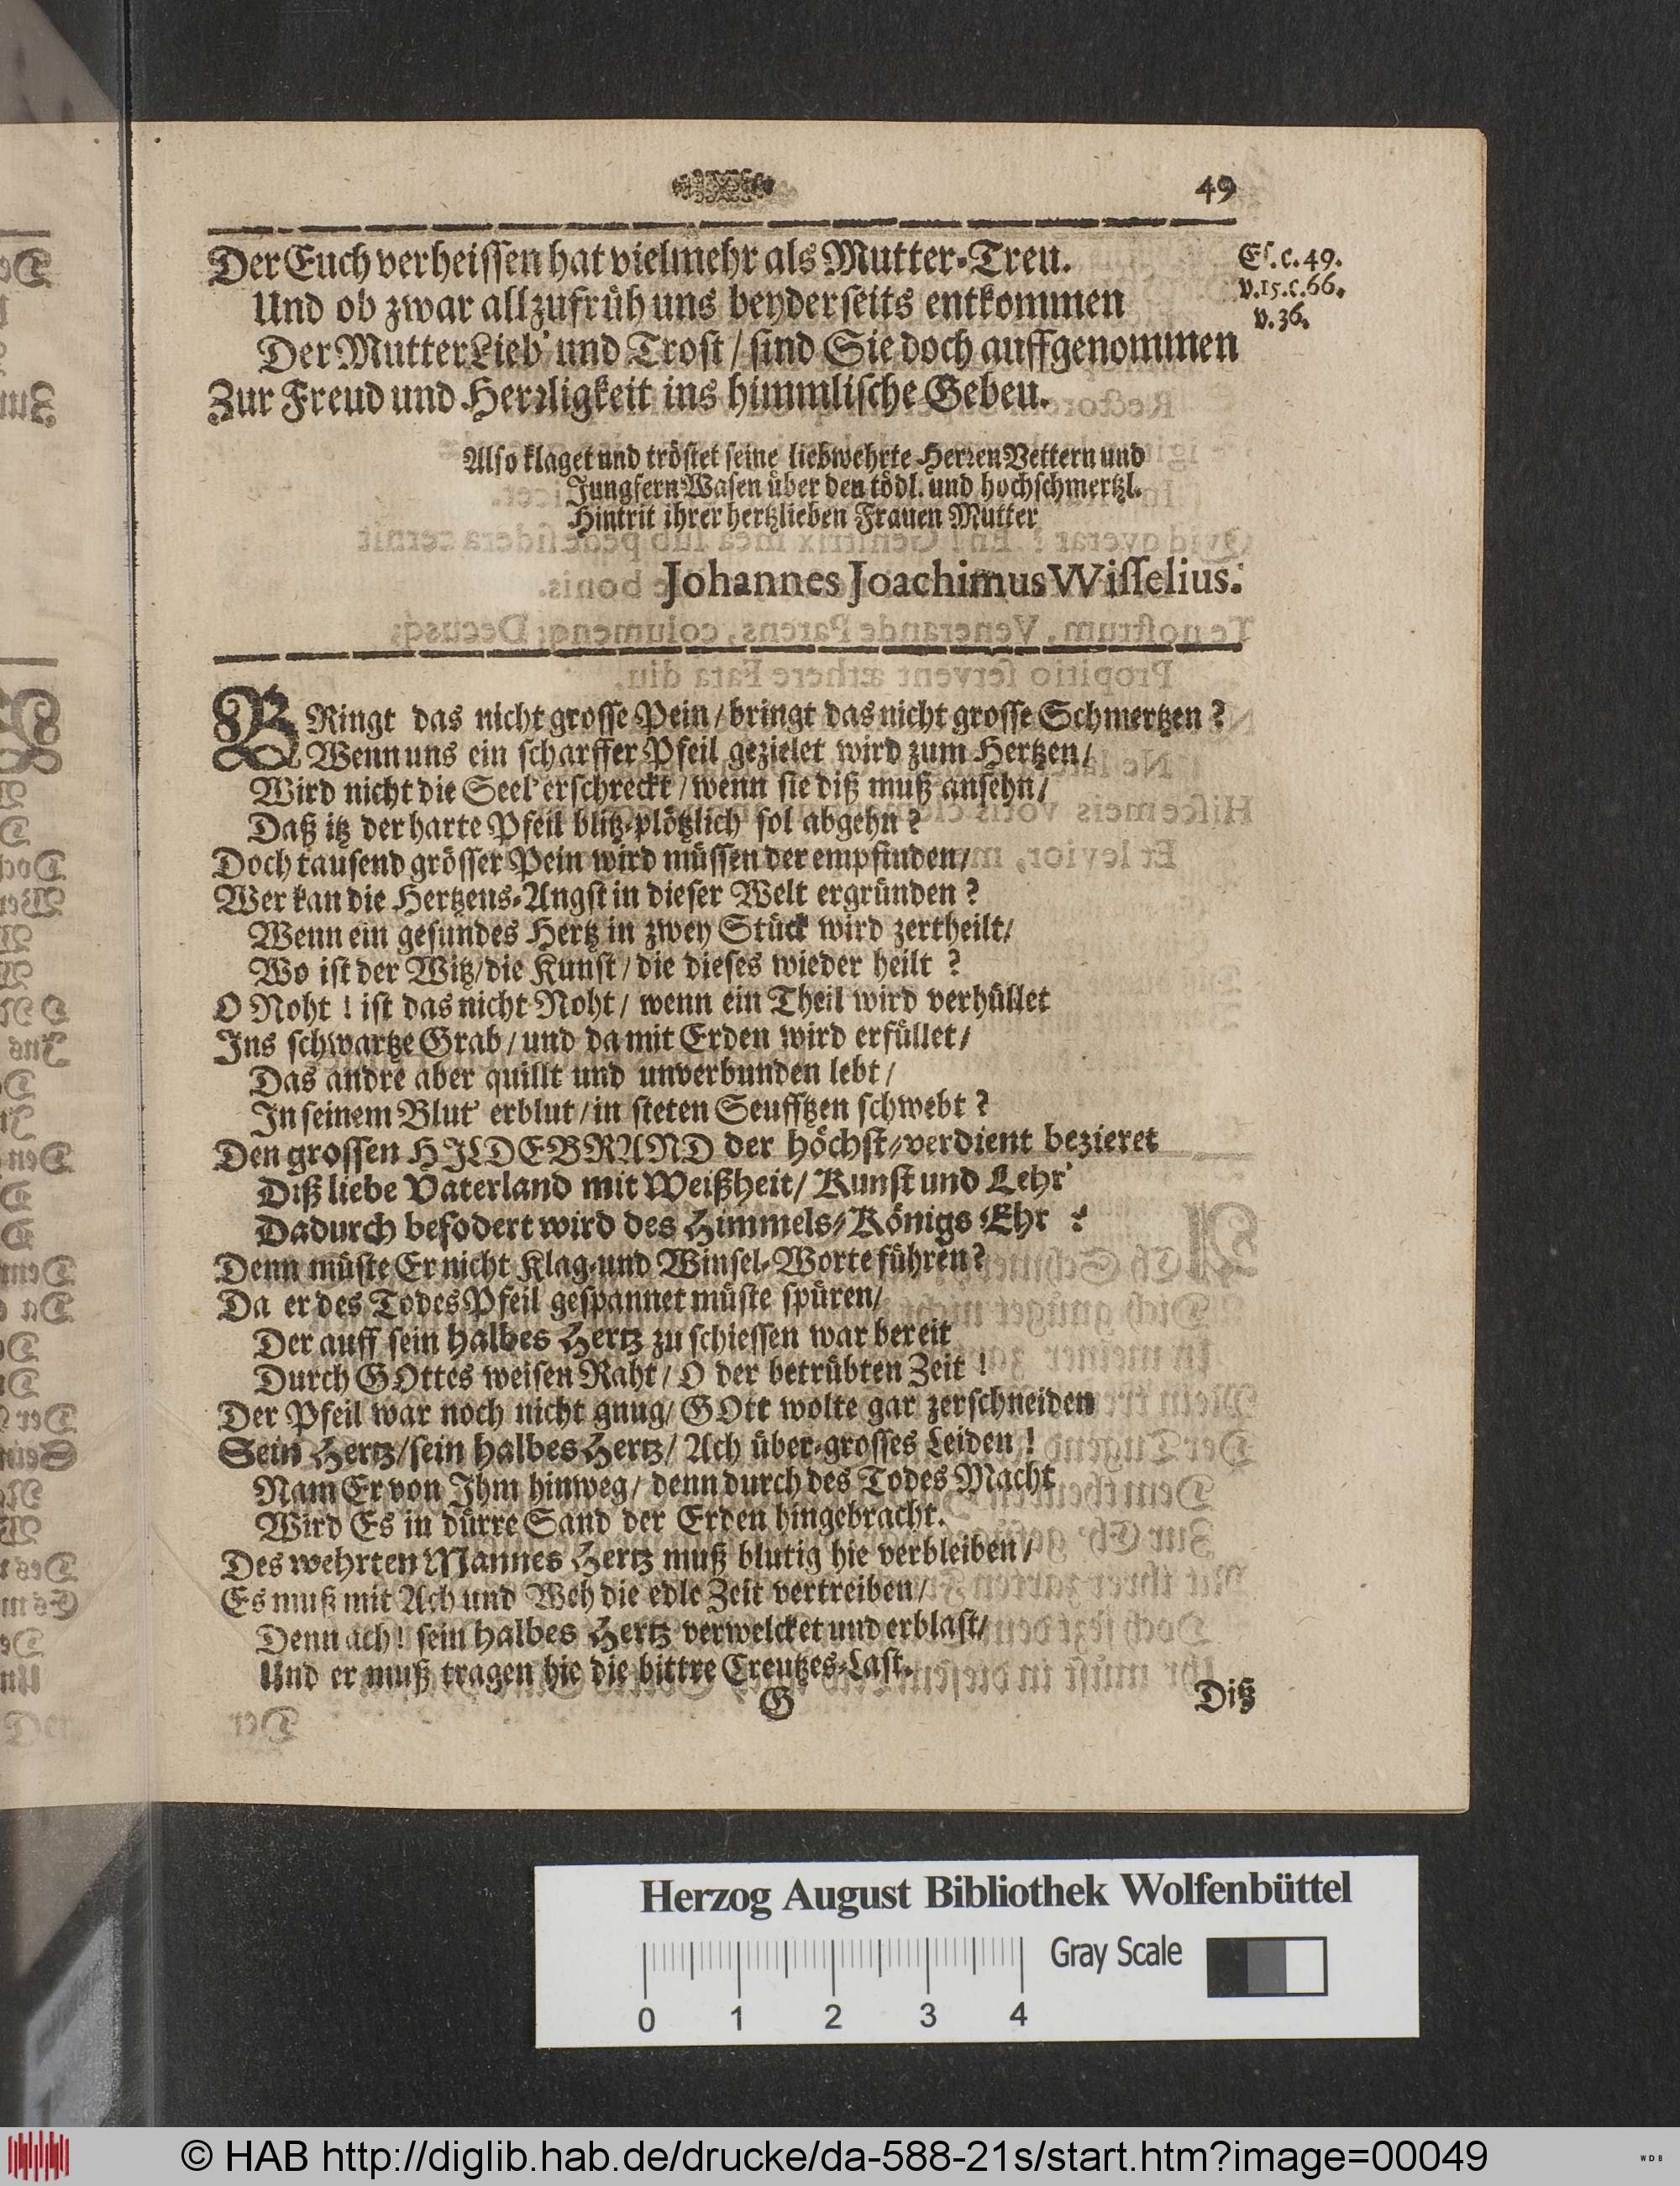 49
Der Euch verheissen hat vielmehr als Mutter-Treu.
Es. c. 49.
v. 15. c. 66.
v. 36.
Und ob zwar allzufrüh uns beyderseits entkommen
Der Mutter Lieb' und Trost / sind Sie doch auffgenommen
Zur Freud und Herrligkeit ins himmlische Gebeu.
Also klaget und tröstet seine liebwehrte Herren Vettern und
Jungfern Wasen über den tödl. und hochschmertzl.
Hintrit ihrer hertzlieben Frauen Mutter
Johannes Joachimus Wisselius.
BRingt das nicht grosse Pein / bringt das nicht grosse Schmertzen ?
Wenn uns ein scharffer Pfeil gezielet wird zum Hertzen /
Wird nicht die Seel' erschreckt / wenn sie diß muß ansehn /
Daß itz der harte Pfeil blitz-plötzlich sol abgehn ?
Doch tausend grösser Pein wird müssen der empfinden /
Wer kan die Hertzens-Angst in dieser Welt ergründen ?
Wenn ein gesundes Hertz in zwey Stück wird zertheilt /
Wo ist der Witz / die Kunst / die dieses wieder heilt ?
O Noht ! ist das nicht Noht / wenn ein Theil wird verhüllet
Ins schwartze Grab / und da mit Erden wird erfüllet /
Das andre aber quillt und unverbunden lebt /
In seinem Blut' erblut / in steten Seufftzen schwebt ?
Den grossen HILDEBRAND der höchst-verdient bezieret
Diß liebe Vaterland mit Weißheit / Kunst und Lehr'
Dadurch befodert wird des Himmels-Königs Ehr ?
Denn müste Er nicht Klag-und Winsel-Worte führen ?
Da er des Todes Pfeil gespannet müste spüren /
Der auff sein halbes Hertz zu schiessen war bereit
Durch GOttes weisen Raht / O der betrübten Zeit !
Der Pfeil war noch nicht gnug / GOtt wolte gar zerschneiden
Sein Hertz / sein halbes Hertz / Ach über-grosses Leiden !
Nam Er von Ihm hinweg / denn durch des Todes Macht
Wird Es in dürre Sand der Erden hingebracht.
Des wehrten Mannes Hertz muß blutig hie verbleiben /
Es muß mit Ach und Weh die edle Zeit vertreiben /
Denn ach ! sein halbes Hertz verwelcket und erblast /
Und er muß tragen hie die bittre Creutzes-Last.
G
Diß
Herzog August Bibliothek Wolfenbüttel
Gray Scale
0 1 2 3 4
© HAB http://diglib.hab.de/drucke/da-588-21s/start.htm?image=00049
WDB